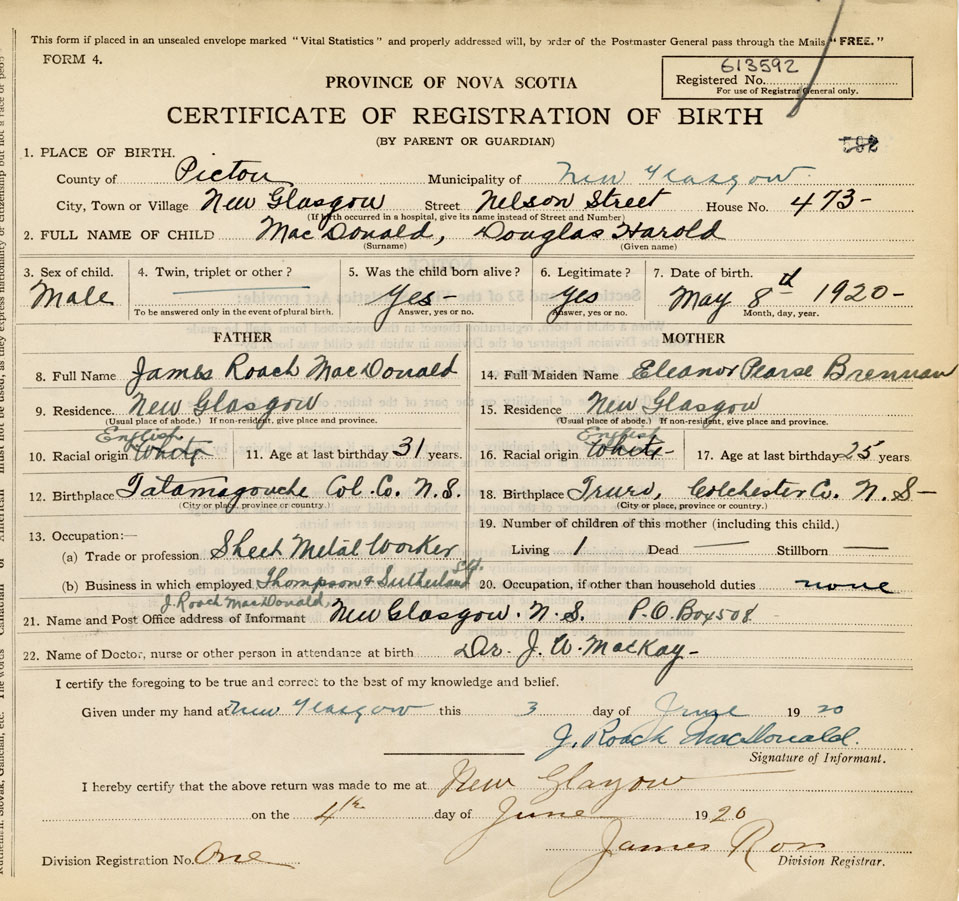 This form if placed in an unsealed envelope marked "Vital Statistics" and properly addressed will, by order of the Postmaster General pass through the Mails "FREE."
FORM 4.
613592
Registered No.
For use of Registrar General only.
PROVINCE OF NOVA SCOTIA
CERTIFICATE OF REGISTRATION OF BIRTH
(BY PARENT OR GUARDIAN)
1. PLACE OF BIRTH.
County of Pictou Municipality of New Glasgow
City, Town or Village New Glasgow Street Nelson Street House No. 473-
(If birth occurred in a hospital, give its name instead of Street and Number)
2. FULL NAME OF CHILD MacDonald, Douglas Harold
(Surname) (Given name)
3. Sex of child. 4. Twin, triplet or other? 5. Was the child born alive? 6. Legitimate? 7. Date of birth.
Male Yes- Yes May 8th 1920-
To be answered only in the event of plural birth. Answer, yes or no. Answer, yes or no. Month, day, year.
FATHER MOTHER
8. Full Name James Roach MacDonald 14. Full Maiden Name Eleanor Pearse Brennan
9. Residence. New Glasgow 15. Residence New Glasgow
(Usual place of abode.) If non-resident, give place and province. (Usual place of abode.) If non-resident, give place and province.
English English
10. Racial origin White 11. Age at last birthday 31 years. 16. Racial origin White- 17. Age at last birthday 25 years
12. Birthplace Tatamagouche Col. Co. N.S. 18. Birthplace Truro, Colchester Co. N.S-
(City or place, province or country.) (City or place, province or country.)
19. Number of children of this mother (including this child.)
13. Occupation:—
(a) Trade or profession Sheet Metal Worker Living 1 Dead — Stillborn —
(b) Business in which employed Thompson & Sutherland Ltd. 20. Occupation, if other than household duties none
J. Roach MacDonald,
21. Name and Post Office address of Informant New Glasgow. N.S. P.O. Box 508
22. Name of Doctor, nurse or other person in attendance at birth Dr. J. W. MacKay-
I certify the foregoing to be true and correct to the best of my knowledge and belief.
Given under my hand at New Glasgow this 3 day of June 1920
J. Roach MacDonald.
Signature of Informant.
I hereby certify that the above return was made to me at New Glasgow
on the 4th day of June 1920
James Ross
Division Registration No. One Division Registrar.